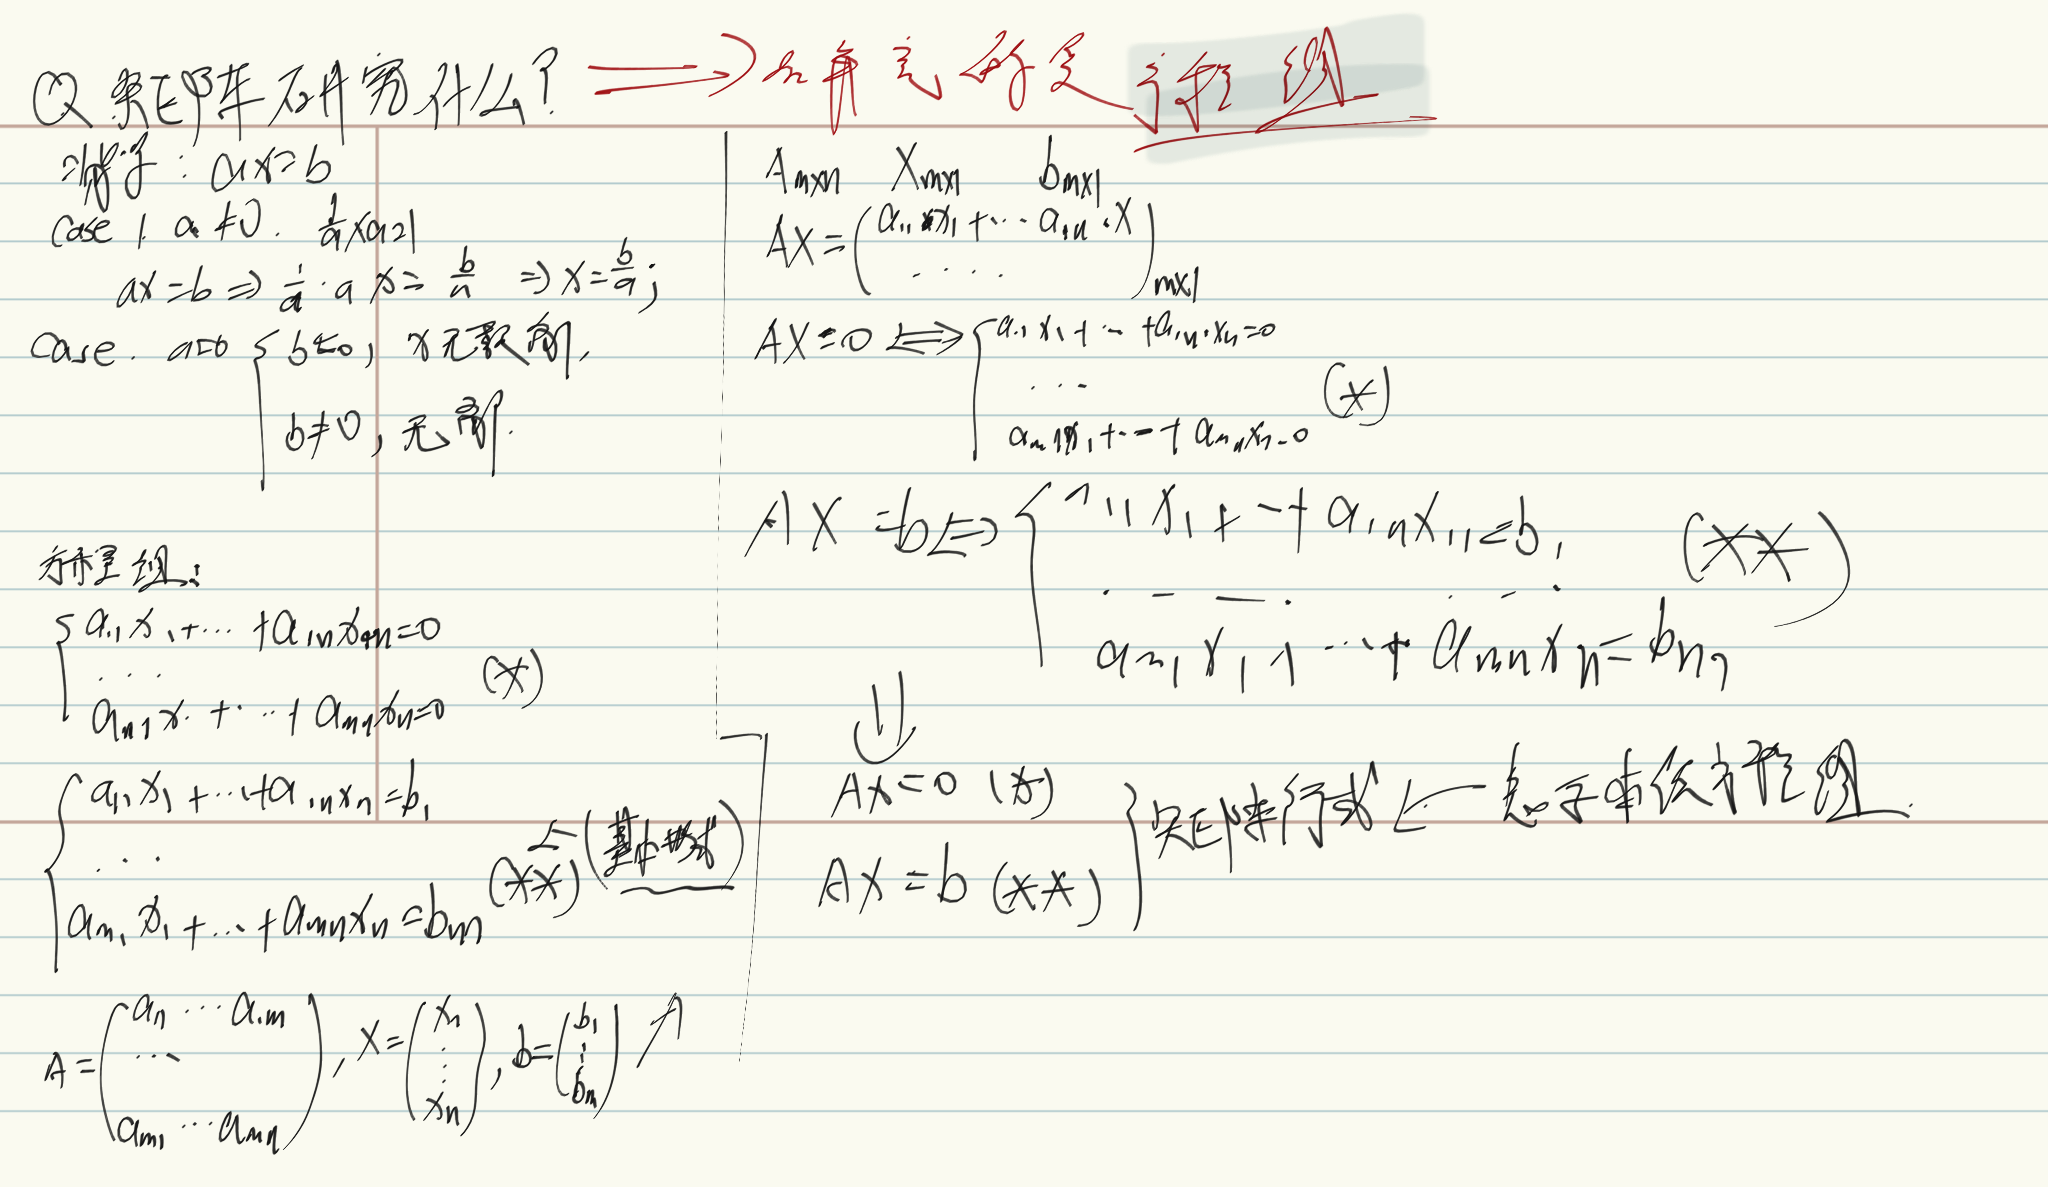 Q 矩阵研究什么? ⟹ 研究的是 方程组
引子: ax=b
case 1. a≠0. 1/a×a=1
ax=b ⇒ 1/a·a x= b/a ⇒ x=b/a;
case. a=0 { b=0, x无数解,
b≠0, 无解.
方程组:
{ a₁₁x₁+⋯+a₁ₙxₙ=0
⋯
aₘ₁x₁+⋯+aₘₙxₙ=0 (*)
{ a₁₁x₁+⋯+a₁ₙxₙ=b₁
⋯
aₘ₁x₁+⋯+aₘₙxₙ=bₘ (**) ← (基本形式)
A=(a₁₁ ⋯ a₁ₘ
⋯
aₘ₁ ⋯ aₘₙ), X=(xₙ ⋮ xₙ), b=(b₁ ⋮ bₘ) ↗
Aₘₓₙ Xₘₓ₁ bₘₓ₁
AX=(a₁₁·x₁+⋯a₁ₙ·X
⋯⋯)ₘₓ₁
AX=0 ⟺ { a₁₁x₁+⋯+a₁ₙ·xₙ=0
⋯
aₘ₁x₁+⋯+aₘₙxₙ=0 (*)
AX=b ⟺ { a₁₁x₁+⋯+a₁ₙxₙ=b₁
⋯ ⋯
aₘ₁x₁+⋯+aₘₙxₙ=bₘ (**)
⇓
AX=0 (*)
AX=b (**) } 矩阵形式 ← 方程组